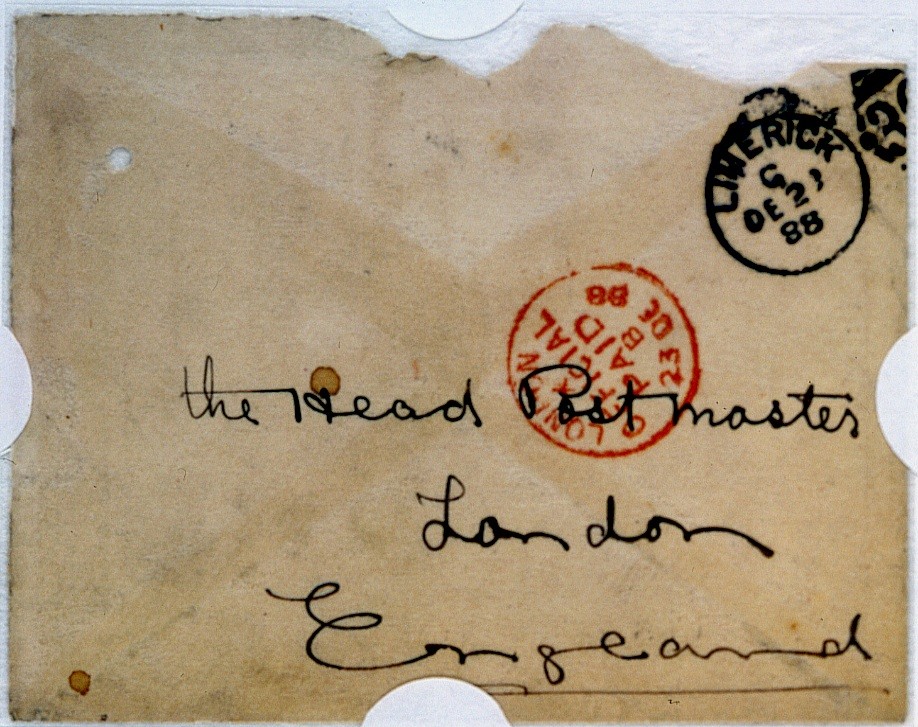 LIMERICK
DE
88
LONDON
OFFICIAL
PAID
23 DE
88
the Head Postmaster
London
England